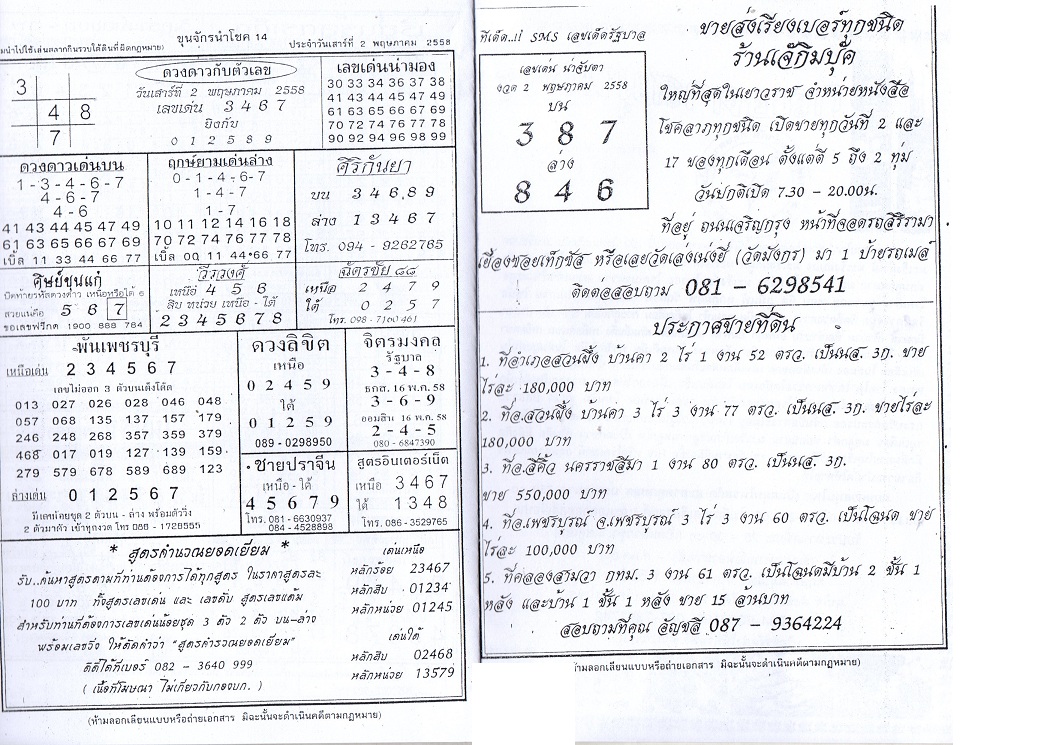 ขุนจักรนำโชค 14
ประจำวันเสาร์ที่ 2 พฤษภาคม 2558
3
4 8
7
ดวงดาวกับตัวเลข
วันเสาร์ที่ 2 พฤษภาคม 2558
เลขเด่น 3 4 6 7
ยิงกับ
0 1 2 5 8 9
เลขเด่นน่ามอง
30 33 34 36 37 38
41 43 44 45 47 49
61 63 65 66 67 69
70 72 74 76 77 78
90 92 94 96 98 99
ดวงดาวเด่นบน
1-3-4-6-7
4-6-7
4-6
41 43 44 45 47 49
61 63 65 66 67 69
เบิ้ล 11 33 44 66 77
ฤกษ์ยามเด่นล่าง
0-1-4-6-7
1-4-7
1-7
10 11 12 14 16 18
70 72 74 76 77 78
เบิ้ล 00 11 44 66 77
ศิริกันยา
บน 3 4 6 8 9
ล่าง 1 3 4 6 7
โทร. 094 - 9262765
ศิษย์ขุนแก้
5 6 7
ขอเลขฟรีกด 1900 888 784
วีรวงศ์
เหนือ 4 5 6
สิบ หน่วย เหนือ - ใต้
2 3 4 5 6 7 8
ฉัตรชัย ๘๘
เหนือ 2 4 7 9
ใต้ 0 2 5 7
โทร. 098-7160 461
พันเพชรบุรี
เหนือเด่น 2 3 4 5 6 7
เลขไม่ออก 3 ตัวบนเต็งโต๊ด
013 027 026 028 046 048
057 068 135 137 157 179
246 248 268 357 359 379
468 017 019 127 139 159
279 579 678 589 689 123
ล่างเด่น 0 1 2 5 6 7
มีเลขน้อยชุด 2 ตัวบน - ล่าง พร้อมตัววิ่ง
2 ตัวมาตัว เข้าทุกงวด โทร 086 - 1728555
ดวงลิขิต
เหนือ
0 2 4 5 9
ใต้
0 1 2 5 9
089-0298950
จิตรมงคล
รัฐบาล
3-4-8
ธกส. 16 พ.ค. 58
3-6-9
ออมสิน 16 พ.ค. 58
2-4-5
080-6847390
ชายปราจีน
เหนือ - ใต้
4 5 6 7 9
โทร. 081-6630937
084-4528898
สูตรอินเตอร์เน็ต
เหนือ 3 4 6 7
ใต้ 1 3 4 8
โทร. 086-3529765
* สูตรคำนวณยอดเยี่ยม *
รับ..ค้นหาสูตรตามที่ท่านต้องการได้ทุกสูตร ในราคาสูตรละ
100 บาท ทั้งสูตรเลขเด่น และ เลขดับ สูตรเลขแต้ม
สำหรับท่านที่ต้องการเลขเด่นน้อยชุด 3 ตัว 2 ตัว บน-ล่าง
พร้อมเลขวิ่ง ให้ตัดคำว่า "สูตรคำรวณยอดเยี่ยม"
ติดได้ที่เบอร์ 082 - 3640 999
( เนื้อที่โฆษณา ไม่เกี่ยวกับกองบก. )
เด่นเหนือ
หลักร้อย 23467
หลักสิบ 01234
หลักหน่วย 01245
เด่นใต้
หลักสิบ 02468
หลักหน่วย 13579
(ห้ามลอกเลียนแบบหรือถ่ายเอกสาร มิฉะนั้นจะดำเนินคดีตามกฎหมาย)
ทีเด็ด..!! SMS เลขเด็ดรัฐบาล
เลขเด่น น่าจับตา
งวด 2 พฤษภาคม 2558
บน
3 8 7
ล่าง
8 4 6
ขายส่งเรียงเบอร์ทุกชนิด
ร้านเจ๊กิมบุ๊ค
ใหญ่ที่สุดในเยาวราช จำหน่ายหนังสือ
โชคลาภทุกชนิด เปิดขายทุกวันที่ 2 และ
17 ของทุกเดือน ตั้งแต่ตี 5 ถึง 2 ทุ่ม
วันปกติเปิด 7.30 - 20.00น.
ที่อยู่ ถนนเจริญกรุง หน้าที่จอดรถสิริรามา
เยื้องซอยเท็กซัส หรือเลยวัดเล่งเน่งยี่ (วัดมังกร) มา 1 ป้ายรถเมล์
ติดต่อสอบถาม 081 - 6298541
ประกาศขายที่ดิน
1. ที่อำเภอสวนผึ้ง บ้านคา 2 ไร่ 1 งาน 52 ตรว. เป็นนส. 3ก. ขาย
ไร่ละ 180,000 บาท
2. ที่อ.สวนผึ้ง บ้านคา 3 ไร่ 3 งาน 77 ตรว. เป็นนส. 3ก. ขายไร่ละ
180,000 บาท
3. ที่อ.สี่คิ้ว นครราชสีมา 1 งาน 80 ตรว. เป็นนส. 3ก.
ขาย 550,000 บาท
4. ที่อ.เพชรบูรณ์ จ.เพชรบูรณ์ 3 ไร่ 3 งาน 60 ตรว. เป็นโฉนด ขาย
ไร่ละ 100,000 บาท
5. ที่คลองสามวา กทม. 3 งาน 61 ตรว. เป็นโฉนดมีบ้าน 2 ชั้น 1
หลัง และบ้าน 1 ชั้น 1 หลัง ขาย 15 ล้านบาท
สอบถามที่คุณ อัญชสี 087 - 9364224
ห้ามลอกเลียนแบบหรือถ่ายเอกสาร มิฉะนั้นจะดำเนินคดีตามกฎหมาย)